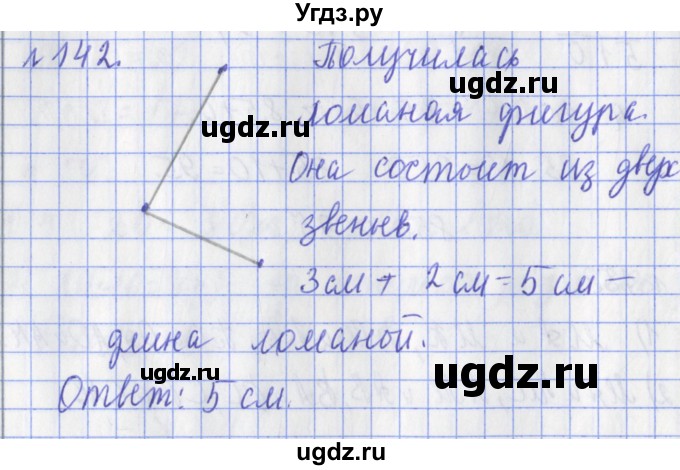 Угдз.ру
№142. Получилась
ugdz.ru
ломаная фигура.
ugdz.ru
Она состоит из двух
звеньев.
3 см + 2 см = 5 см —
длина ломаной.
ugdz.ru
ugdz.ru
Ответ: 5 см.
ugdz.ru